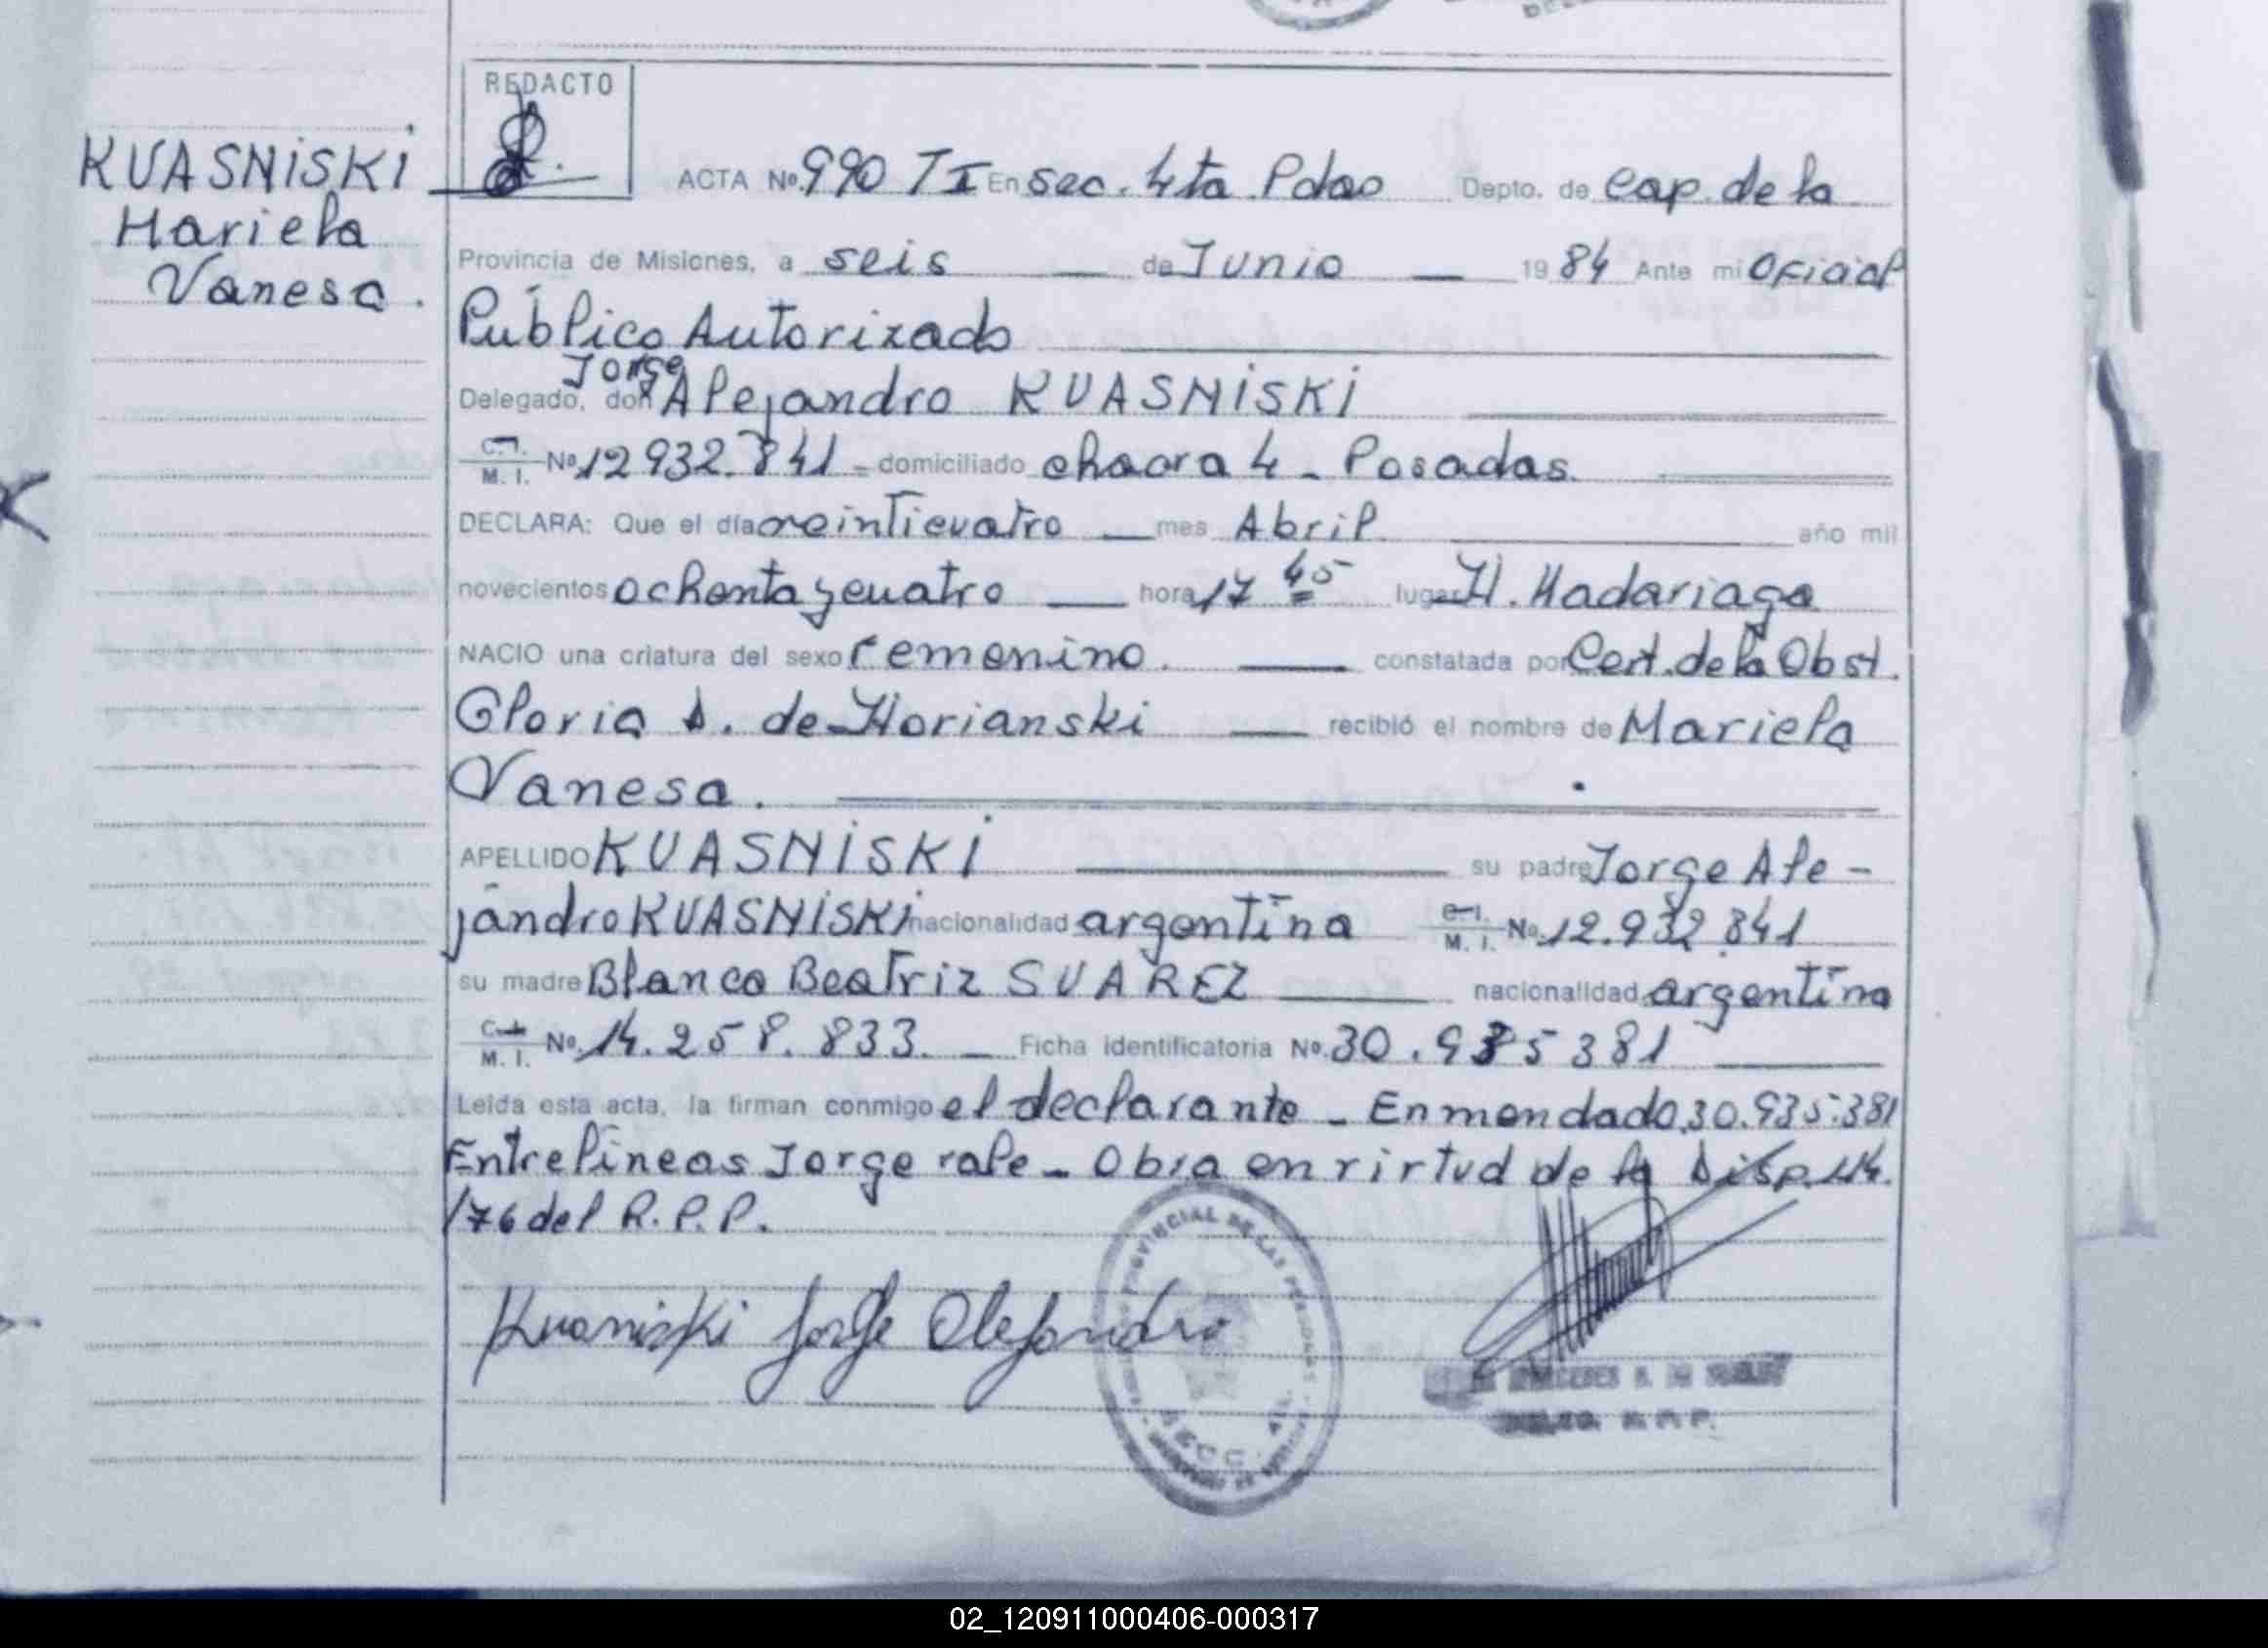 REDACTO
KUASNiSKi
Mariela
Vanesa.
ACTA No. 990 TI En sec. 4ta Pdas Depto. de Cap. de la
Provincia de Misiones, a seis de Junio 1984 Ante mi Oficial
Público Autorizado
Jorge
Delegado, don Alejandro KUASNiSKi
C. I. M. I. No 12932.841 - domiciliado chacra 4 - Posadas.
DECLARA: Que el día veinticuatro mes Abril año mil
novecientos ochenta y cuatro hora 17 45 lugar H. Madariaga
NACIO una criatura del sexo femenino. constatada por Cert. de la Obst.
Gloria D. de Horianski recibió el nombre de Mariela
Vanesa.
APELLIDO KUASNiSKi su padre Jorge Ale-
jandro KUASNiSKi nacionalidad argentina C. I. M. I. No. 12.932.841
su madre Blanca Beatriz SUAREZ nacionalidad argentina
C. I. M. I. No. 14.258.833. Ficha identificatoria No. 30.935381
Leida esta acta, la firman conmigo el declarante - Enmendado, 30.935.381
Entrelíneas Jorge vale - Obra en virtud de la Disp. 114
/76 del R.P.P.
Kuasniski Jorge Alejandro
PROVINCIAL DE LAS PERSONAS
02_120911000406-000317